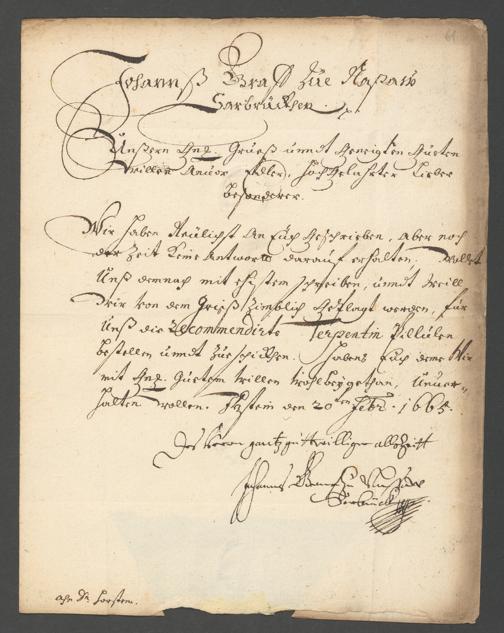 Johannß Graff zue Naßaw
Sarbrücken.
Unsern gnd. Grueß undt geneigten Gueten
willen zuvor, Edler, hochgelahrter Lieber
besonderer.
Wir haben Neülichst An Euch geschrieben, Aber noch
der Zeit keine Antwortt darauf erhalten. Wollet
Unß demnach mit ehistem schreiben, undt weill
wir von dem Grieß zimblich geplagt werden, für
Unß die Recommendirte Terpentin Pillülen
bestellen undt zueschicken. habens Euch deme Wir
mit gnd. Guetem willen wohlbeygethan, Unver-
halten wollen. Itzstein den 20ten Febr. 1665.
Des Herrn gantz guttwilliger allezeitt
Johannes Graff zu Naßaw
Sarbrück
ahn Dr. Horstem.